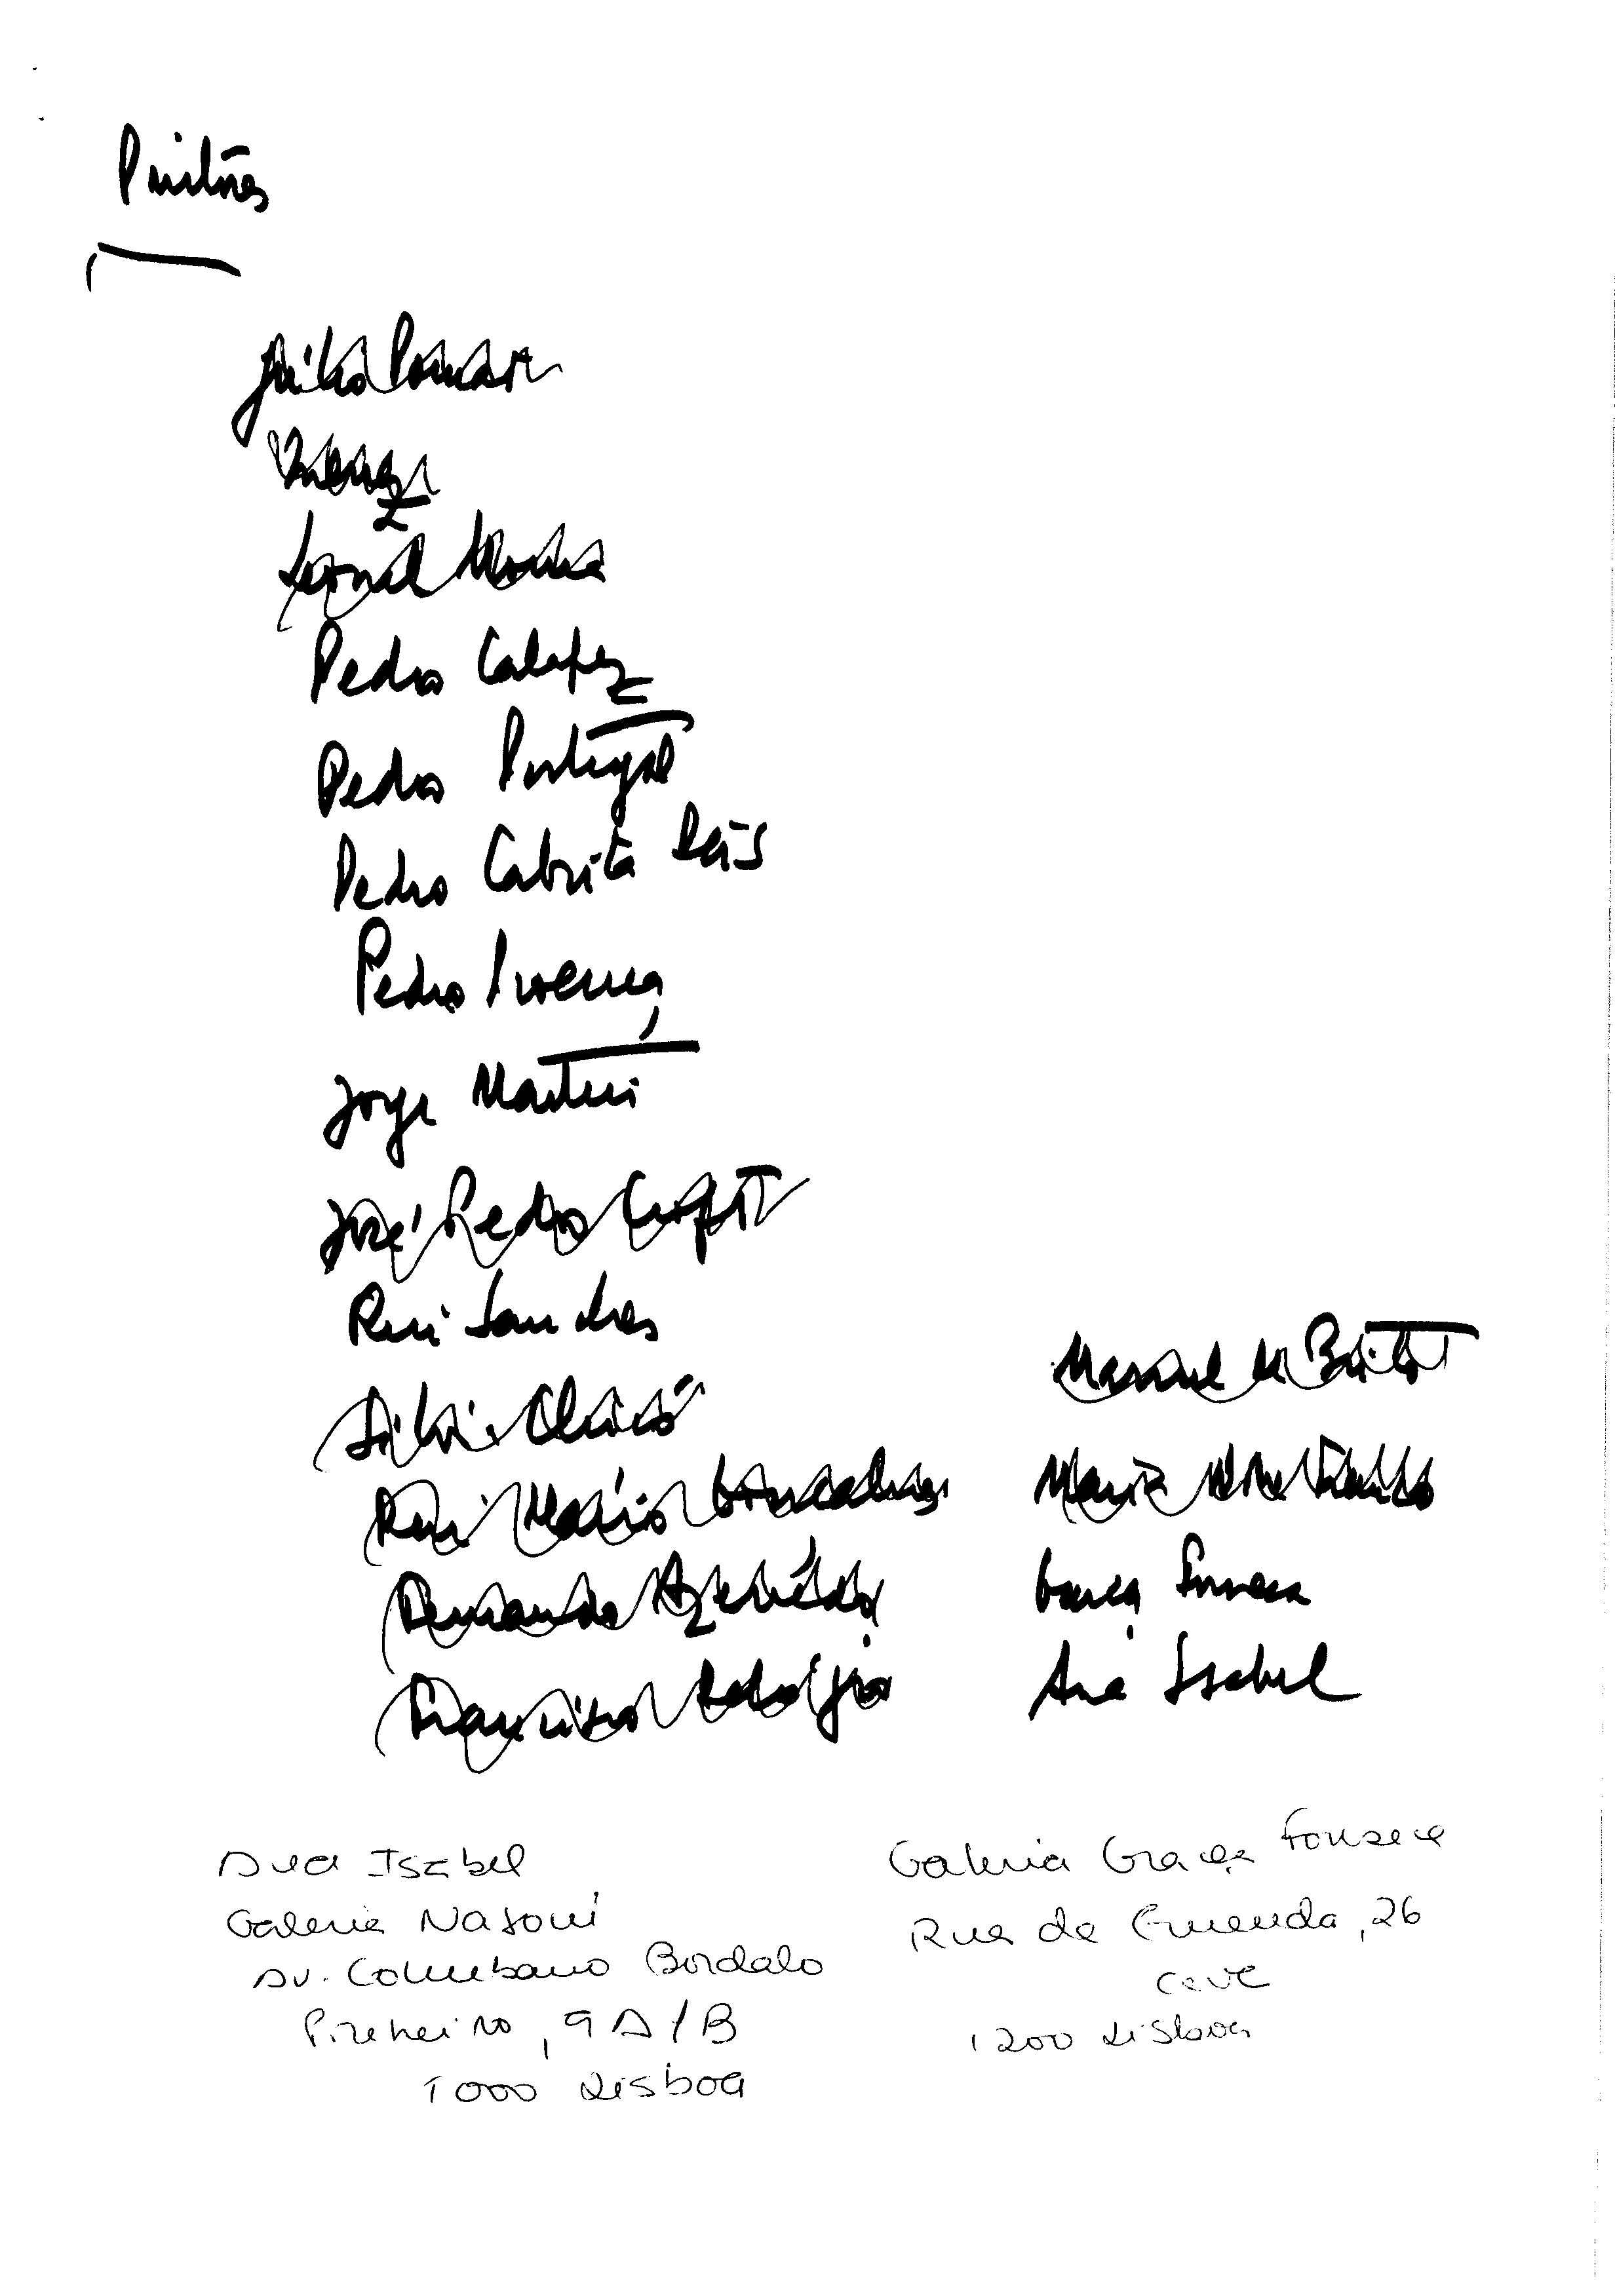 Pintores
Júlio Pomar
Menez
Leonel Moura
Pedro Calapez
Pedro Portugal
Pedro Cabrita Reis
Pedro Proença
Jorge Martins
José Pedro Croft
Rui Sanches
Sílvia Chicó
Rui Mário Gonçalves
Fernando Azevedo
Francisco
Manuel de Brito
Maria
Graça Fonseca
Ana Isabel
Ana Isabel
Galeria Nasoni
Av. Columbano Bordalo
Pinheiro, 9 A/B
1000 Lisboa
Galeria Graça Fonseca
Rua da Emenda, 26
cave
1200 Lisboa